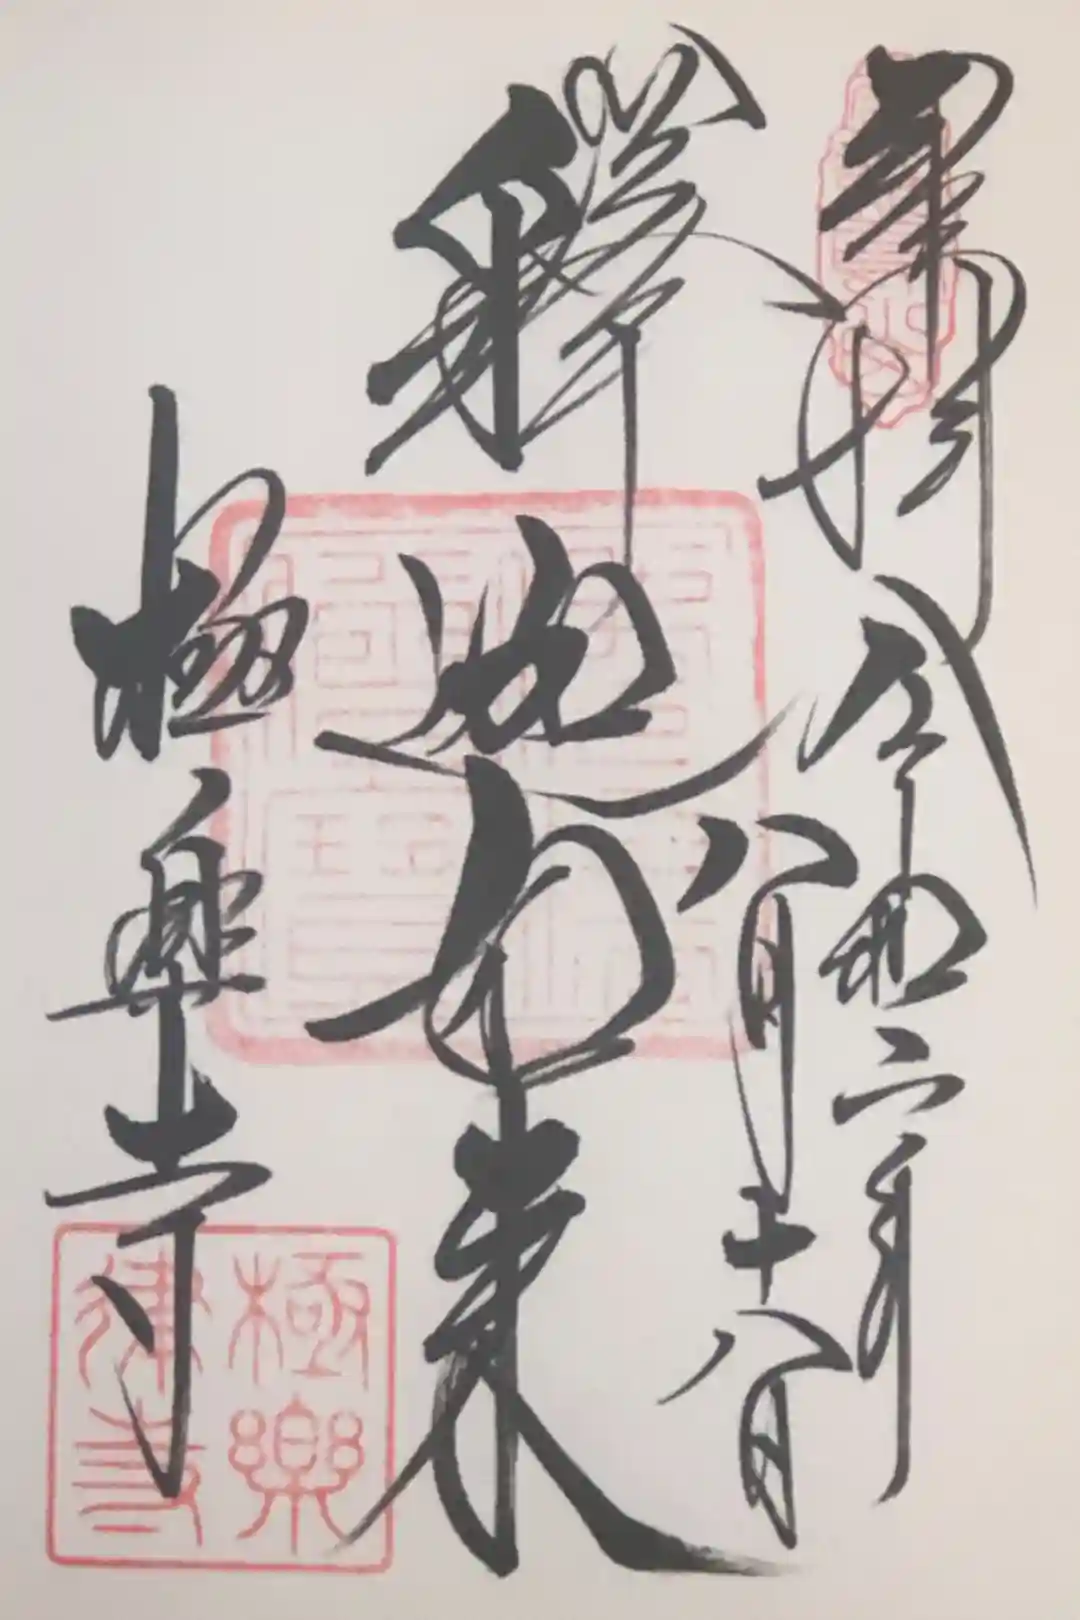 奉拝 令和二年
八月十八日
釋迦如来
極楽寺
極樂
律寺